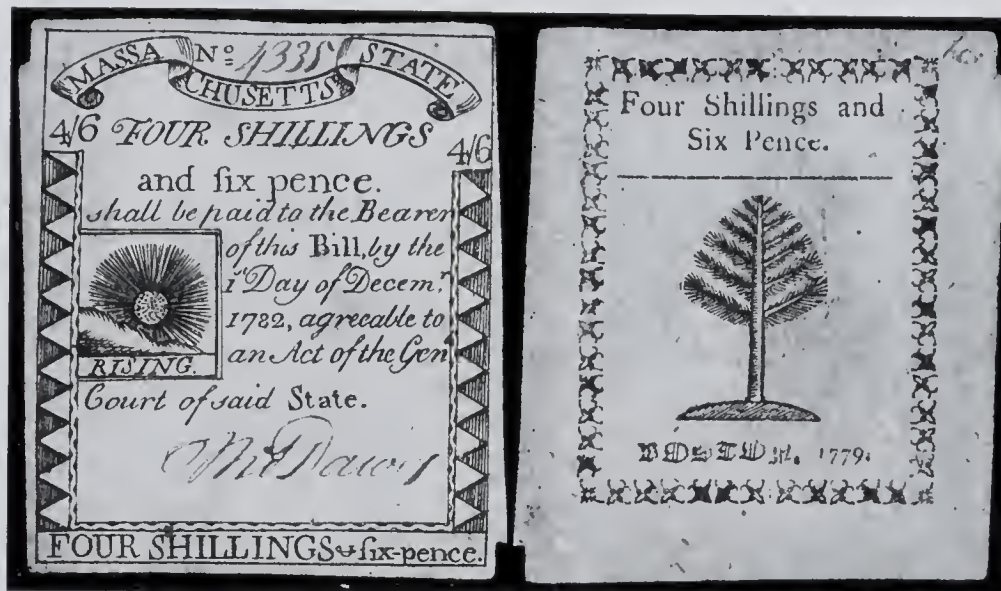 MASSA CHUSETTS STATE
Nº 1335
4/6 FOUR SHILLINGS 4/6
and ſix pence.
shall be paid to the Bearer
of this Bill, by the
1st Day of Decemr
1782, agreeable to
RISING.
an Act of the Genl
Court of said State.
FOUR SHILLINGS & ſix-pence.
Four Shillings and
Six Pence.
BOSTON. 1779.